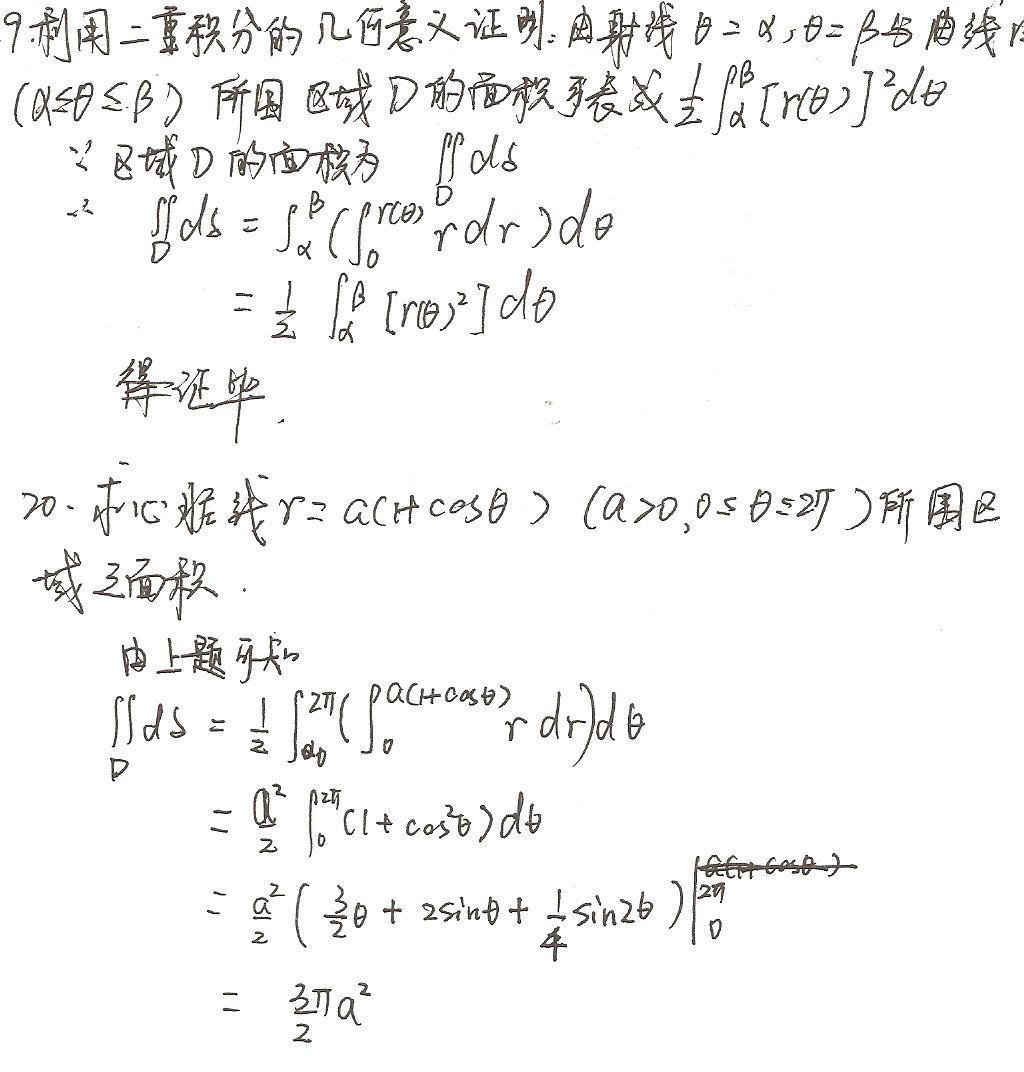 9.利用二重积分的几何意义证明:由射线 θ=α,θ=β与曲线r
(α≤θ≤β) 所围区域D的面积可表成 1/2∫_α^β[r(θ)]²dθ
∵ 区域D的面积为 ∬_D ds
∴ ∬_D ds = ∫_α^β(∫_0^{r(θ)} r dr)dθ
= 1/2 ∫_α^β [r(θ)²]dθ
证毕.
20. 求心脏线 r=a(1+cosθ) (a>0,0≤θ≤2π)所围区
域之面积.
由上题可知
∬_D ds = 1/2 ∫_0^{2π}(∫_0^{a(1+cosθ)} r dr)dθ
= a²/2 ∫_0^{2π}(1+cos²θ)dθ
= a²/2 ( 3/2 θ + 2sinθ + 1/4 sin2θ )|_0^{2π}
= 3/2 πa²